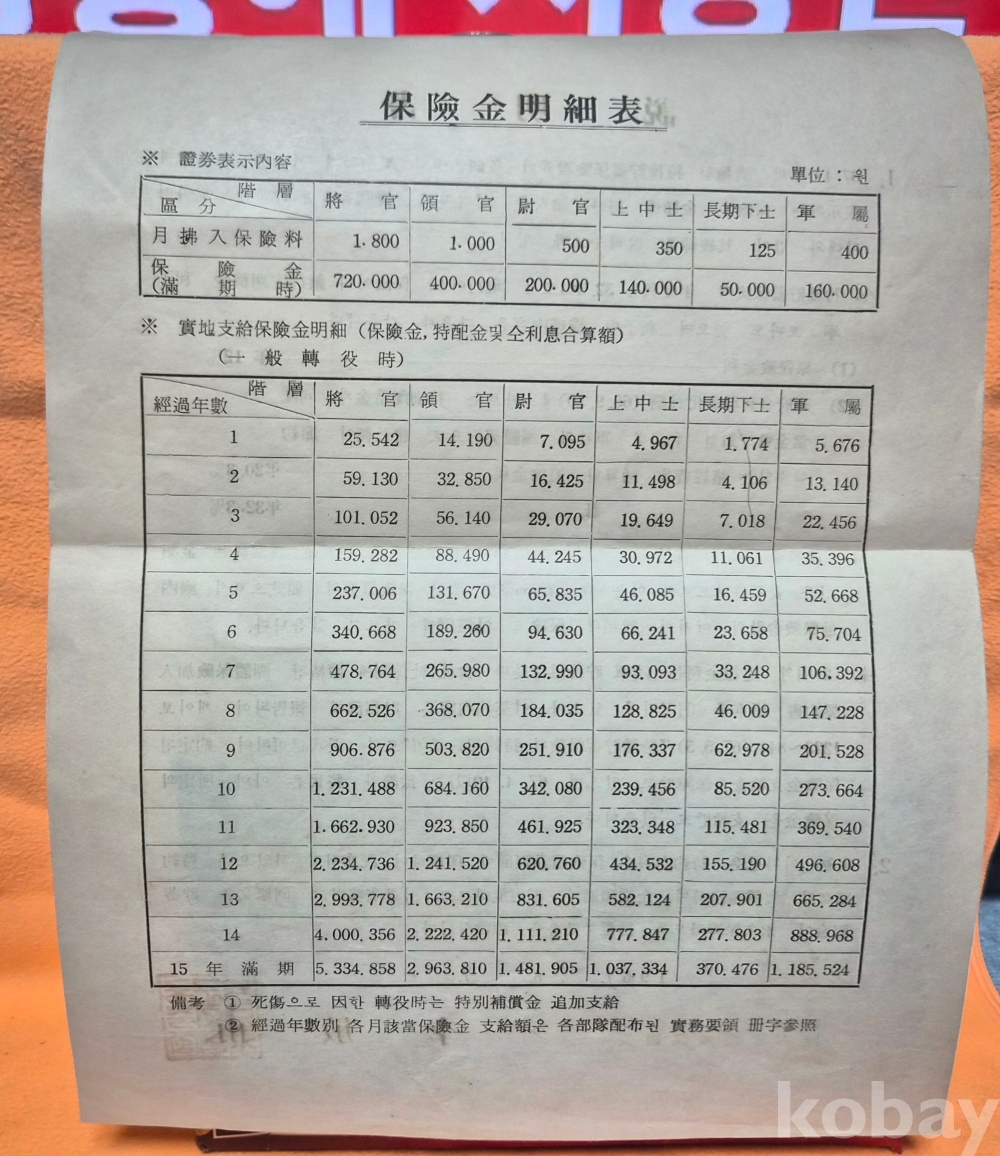 保險金明細表
※ 證券表示內容
單位 : 원
階層 區分 將官 領官 尉官 上中士 長期下士 軍屬
月拂入保險料 1.800 1.000 500 350 125 400
保險金 (滿期時) 720.000 400.000 200.000 140.000 50.000 160.000
※ 實地支給保險金明細 (保險金, 特配金및 仝利息合算額)
(一般轉役時)
階層 經過年數 將官 領官 尉官 上中士 長期下士 軍屬
1 25.542 14.190 7.095 4.967 1.774 5.676
2 59.130 32.850 16.425 11.498 4.106 13.140
3 101.052 56.140 29.070 19.649 7.018 22.456
4 159.282 88.490 44.245 30.972 11.061 35.396
5 237.006 131.670 65.835 46.085 16.459 52.668
6 340.668 189.260 94.630 66.241 23.658 75.704
7 478.764 265.980 132.990 93.093 33.248 106.392
8 662.526 368.070 184.035 128.825 46.009 147.228
9 906.876 503.820 251.910 176.337 62.978 201.528
10 1.231.488 684.160 342.080 239.456 85.520 273.664
11 1.662.930 923.850 461.925 323.348 115.481 369.540
12 2.234.736 1.241.520 620.760 434.532 155.190 496.608
13 2.993.778 1.663.210 831.605 582.124 207.901 665.284
14 4.000.356 2.222.420 1.111.210 777.847 277.803 888.968
15年滿期 5.334.858 2.963.810 1.481.905 1.037.334 370.476 1.185.524
備考 ① 死傷으로 因한 轉役時는 特別補償金 追加支給
② 經過年數別 各月該當保險金 支給額은 各部隊配布된 實務要領 册字參照
kobay